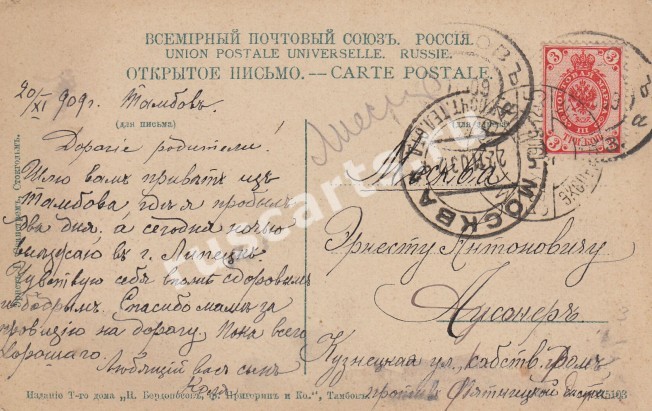 ВСЕМІРНЫЙ ПОЧТОВЫЙ СОЮЗЪ. РОССІЯ.
UNION POSTALE UNIVERSELLE. RUSSIE.
ОТКРЫТОЕ ПИСЬМО.—CARTE POSTALE.
20/XI 909 г. Тамбовъ.
(для письма)
Дорогіе родители!
Шлю вамъ приветъ изъ
Тамбова, где я пробылъ
два дня, а сегодня ночью
выезжаю въ г. Липецкъ.
Чувствую себя вполне здоровымъ
и бодрымъ. Спасибо мамѣ за
провизію на дорогу. Пока всего
хорошаго.
Любящій васъ сынъ
(для
Москва
Эрнесту Антоновичу
Кузнецкая ул., собств. домъ
противъ Пятницкой части
МОСКВА
3
3
3
ruscarta
Изданіе Т-го дома „П. Григорик и Ко.“, Тамбовъ.
Стокгольмъ.